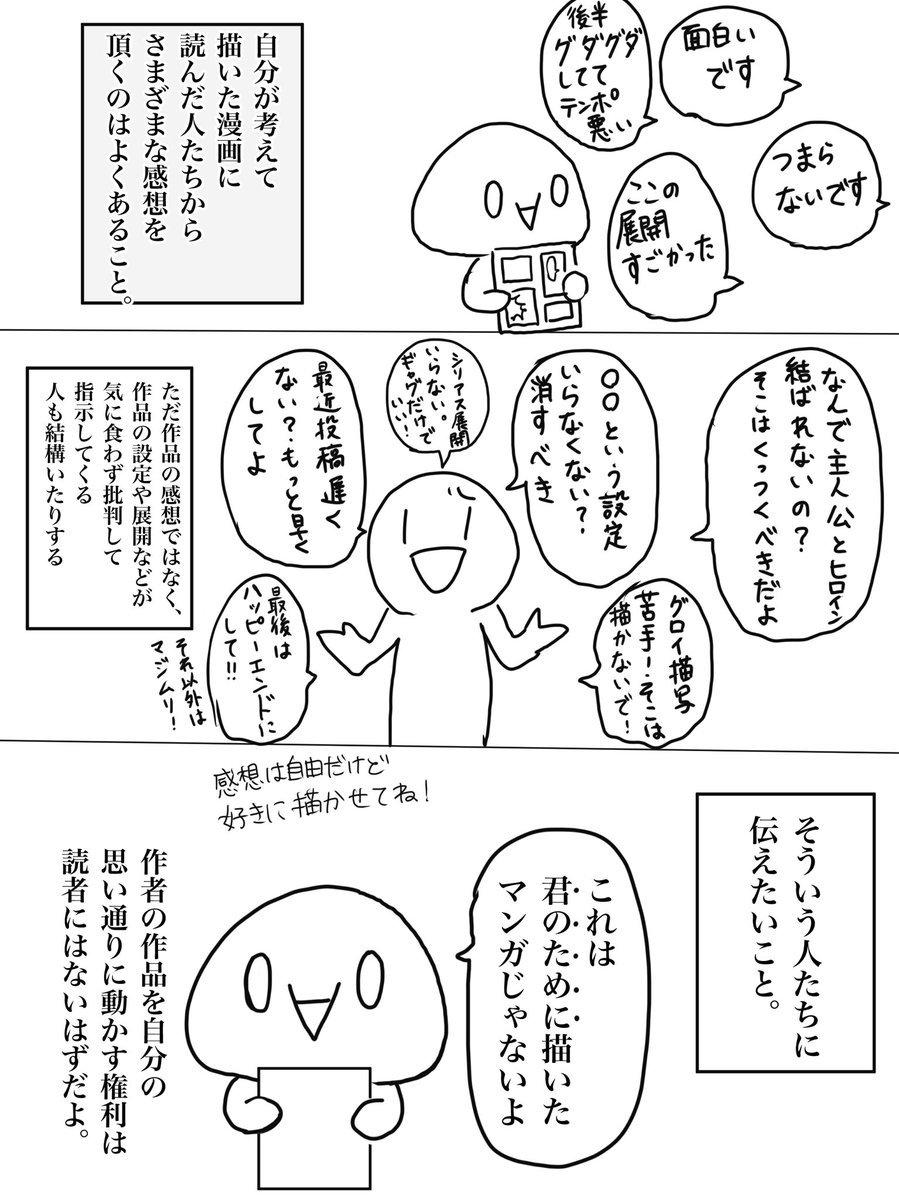 自分が考えて
描いた漫画に
読んだ人たちから
さまざまな感想を
頂くのはよくあること。
面白い
です
後半
グダグダ
してて
テンポ
悪い
つまら
ないです
ここの
展開
すごかった
なんで主人公とヒロイン
結ばれないの?
そこはくっつくべきだよ
〇〇という設定
いらなくない?
消すべき
シリアス展開
いらない。
ギャグだけで
いい!
最近投稿遅く
ない?もっと早く
してよ
グロイ描写
苦手ー。そこは
描かないで!
最後は
ハッピーエンドに
して!!
それ以外は
マジムリ!
ただ作品の感想ではなく、
作品の設定や展開などが
気に食わず批判して
指示してくる
人も結構いたりする
そういう人たちに
伝えたいこと。
これは
君のために描いた
マンガじゃないよ
感想は自由だけど
好きに描かせてね!
作者の作品を自分の
思い通りに動かす権利は
読者にはないはずだよ。